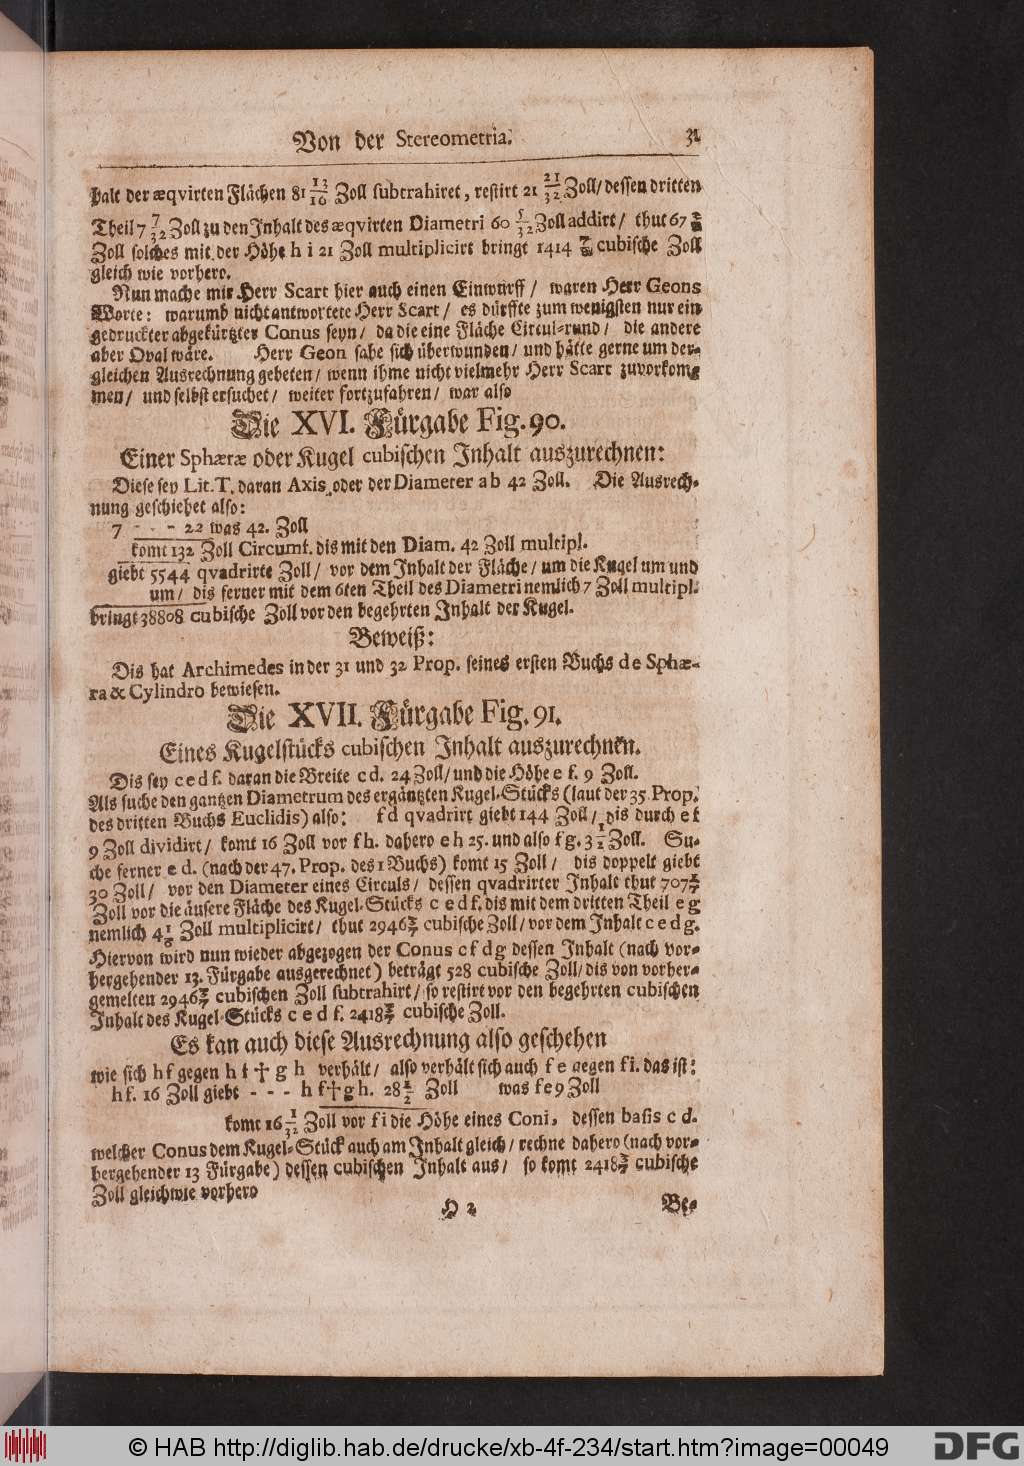 Von der Stereometria. 31
halt der æqvirten Flächen 81 13/16 Zoll subtrahiret, restirt 21 21/32 Zoll/ dessen dritten
Theil 7 7/32 Zoll zu den Inhalt des æqvirten Diametri 60 5/32 Zoll addirt/ thut 67
Zoll solches mit der Höhe h i 21 Zoll multiplicirt bringt 1414 cubische Zoll
gleich wie vorhero.
Nun mache mir Herr Scart hier auch einen Einwurff/ waren Herr Geons
Worte: warumb nicht antwortete Herr Scart/ es dürffte zum wenigsten nur ein
gedruckter abgekürtzter Conus seyn/ da die eine Fläche Circul-rund/ die andere
aber Oval wäre. Herr Geon sahe sich überwunden/ und hätte gerne um der-
gleichen Ausrechnung gebeten/ wenn ihme nicht vielmehr Herr Scart zuvorkom-
men/ und selbst ersuchet/ weiter fortzufahren/ war also
Die XVI. Fürgabe Fig. 90.
Einer Sphæræ oder Kugel cubischen Inhalt auszurechnen:
Diese sey Lit. T. daran Axis oder der Diameter a b 42 Zoll. Die Ausrech-
nung geschiehet also:
7 - - - 22 was 42. Zoll
komt 132 Zoll Circumf. dis mit den Diam. 42 Zoll multipl.
giebt 5544 qvadrirte Zoll/ vor dem Inhalt der Fläche/ um die Kugel um und
um/ dis ferner mit dem 6ten Theil des Diametri nemlich 7 Zoll multipl.
bringt 38808 cubische Zoll vor den begehrten Inhalt der Kugel.
Beweiß:
Dis hat Archimedes in der 31 und 32 Prop. seines ersten Buchs de Sphæ-
ra & Cylindro bewiesen.
Die XVII. Fürgabe Fig. 91.
Eines Kugelstücks cubischen Inhalt auszurechnen.
Dis sey c e d f. daran die Breite c d. 24 Zoll/ und die Höhe e f. 9 Zoll.
Als suche den gantzen Diametrum des ergäntzten Kugel-Stücks (laut der 35 Prop.
des dritten Buchs Euclidis) also: f d qvadrirt giebt 144 Zoll/ dis durch e f
9 Zoll dividirt/ komt 16 Zoll vor f h. dahero e h 25. und also f g. 3 1/2 Zoll. Su-
che ferner e d. (nach der 47. Prop. des 1 Buchs) komt 15 Zoll/ dis doppelt giebt
30 Zoll/ vor den Diameter eines Circuls/ dessen qvadrirter Inhalt thut 707 1/7
Zoll vor die äusere Fläche des Kugel-Stücks c e d f. dis mit dem dritten Theil e g
nemlich 4 1/6 Zoll multiplicirt/ thut 2946 3/7 cubische Zoll/ vor dem Inhalt c e d g.
Hiervon wird nun wieder abgezogen der Conus c f d g dessen Inhalt (nach vor-
hergehender 13. Fürgabe ausgerechnet) beträgt 528 cubische Zoll/ dis von vorher-
gemelten 2946 3/7 cubischen Zoll subtrahirt/ so restirt vor den begehrten cubischen
Inhalt des Kugel-Stücks c e d f. 2418 3/7 cubische Zoll.
Es kan auch diese Ausrechnung also geschehen
wie sich h f gegen h f † g h verhält/ also verhält sich auch f e gegen f i. das ist:
h f. 16 Zoll giebt - - - h f † g h. 28 1/2 Zoll was f e 9 Zoll
komt 16 1/32 Zoll vor f i die Höhe eines Coni, dessen basis c d.
welcher Conus dem Kugel-Stück auch am Inhalt gleich/ rechne dahero (nach vor-
hergehender 13 Fürgabe) dessen cubischen Inhalt aus/ so komt 2418 3/7 cubische
Zoll gleichwie vorhero
H 2 Be-
© HAB http://diglib.hab.de/drucke/xb-4f-234/start.htm?image=00049 DFG